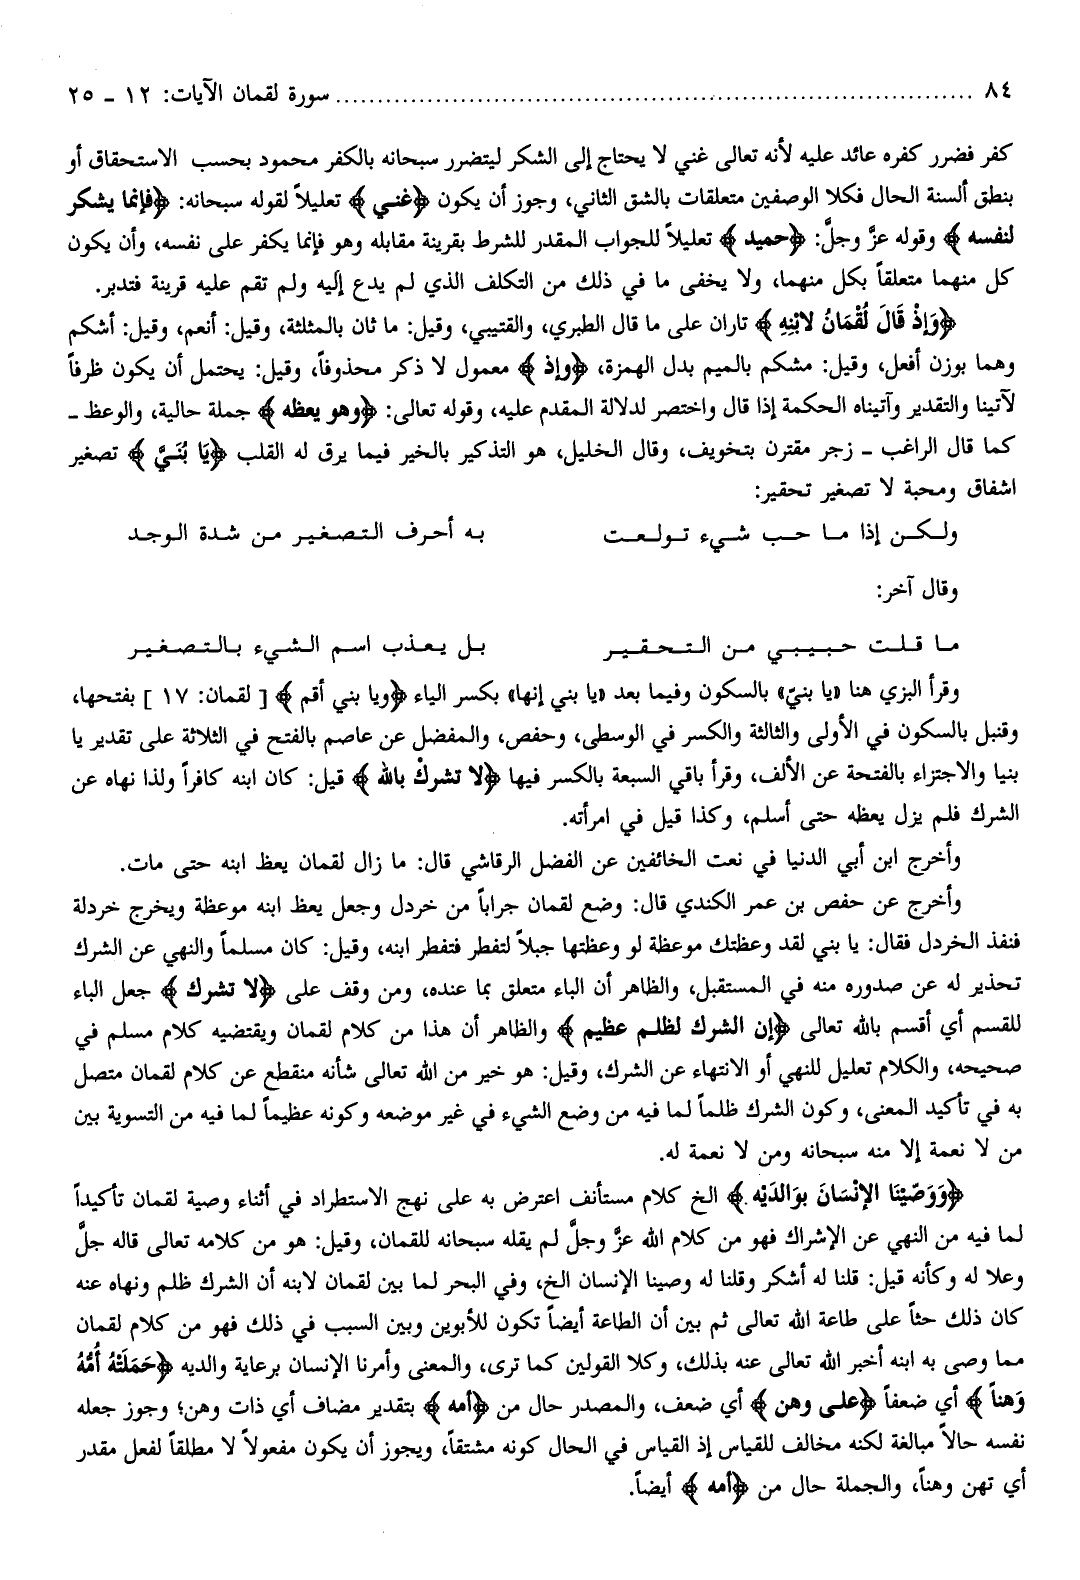 ٨٤ ........................................................................ سورة لقمان الآيات: ١٢ ـ ٢٥
كفر فضرر كفره عائد عليه لأنه تعالى غني لا يحتاج إلى الشكر ليتضرر سبحانه بالكفر محمود بحسب الاستحقاق أو
بنطق ألسنة الحال فكلا الوصفين متعلقات بالشق الثاني، وجوز أن يكون ﴿غني﴾ تعليلاً لقوله سبحانه: ﴿فإنما يشكر
لنفسه﴾ وقوله عزَّ وجلَّ: ﴿حميد﴾ تعليلاً للجواب المقدر للشرط بقرينة مقابله وهو فإنما يكفر على نفسه، وأن يكون
كل منهما متعلقاً بكل منهما، ولا يخفى ما في ذلك من التكلف الذي لم يدع إليه ولم تقم عليه قرينة فتدبر.
﴿وَإِذْ قَالَ لُقْمَانُ لابْنِهِ﴾ تاران على ما قال الطبري، والقتيبي، وقيل: ما ثان بالمثلثة، وقيل: أنعم، وقيل: أشكم
وهما بوزن أفعل، وقيل: مشكم بالميم بدل الهمزة، ﴿وإذ﴾ معمول لا ذكر محذوفاً، وقيل: يحتمل أن يكون ظرفاً
لآتينا والتقدير وآتيناه الحكمة إذا قال واختصر لدلالة المقدم عليه، وقوله تعالى: ﴿وهو يعظه﴾ جملة حالية، والوعظ ـ
كما قال الراغب ـ زجر مقترن بتخويف، وقال الخليل، هو التذكير بالخير فيما يرق له القلب ﴿يَا بُنَيَّ﴾ تصغير
اشفاق ومحبة لا تصغير تحقير:
ولكن إذا ما حب شيء تولعت به أحرف التصغير من شدة الوجد
وقال آخر:
ما قلت حبيبي من التحقير بل يعذب اسم الشيء بالتصغير
وقرأ البزي هنا «يا بنيّ» بالسكون وفيما بعد «يا بني إنها» بكسر الياء ﴿ويا بني أقم﴾ [ لقمان: ١٧ ] بفتحها،
وقنبل بالسكون في الأولى والثالثة والكسر في الوسطى، وحفص، والمفضل عن عاصم بالفتح في الثلاثة على تقدير يا
بنيا والاجتزاء بالفتحة عن الألف، وقرأ باقي السبعة بالكسر فيها ﴿لا تشركْ بالله﴾ قيل: كان ابنه كافراً ولذا نهاه عن
الشرك فلم يزل يعظه حتى أسلم، وكذا قيل في امرأته.
وأخرج ابن أبي الدنيا في نعت الخائفين عن الفضل الرقاشي قال: ما زال لقمان يعظ ابنه حتى مات.
وأخرج عن حفص بن عمر الكندي قال: وضع لقمان جراباً من خردل وجعل يعظ ابنه موعظة ويخرج خردلة
فنفذ الخردل فقال: يا بني لقد وعظتك موعظة لو وعظتها جبلاً لتفطر فتفطر ابنه، وقيل: كان مسلماً والنهي عن الشرك
تحذير له عن صدوره منه في المستقبل، والظاهر أن الباء متعلق بما عنده، ومن وقف على ﴿لا تشرك﴾ جعل الباء
للقسم أي أقسم بالله تعالى ﴿إن الشرك لظلم عظيم﴾ والظاهر أن هذا من كلام لقمان ويقتضيه كلام مسلم في
صحيحه، والكلام تعليل للنهي أو الانتهاء عن الشرك، وقيل: هو خير من الله تعالى شأنه منقطع عن كلام لقمان متصل
به في تأكيد المعنى، وكون الشرك ظلماً لما فيه من وضع الشيء في غير موضعه وكونه عظيماً لما فيه من التسوية بين
من لا نعمة إلا منه سبحانه ومن لا نعمة له.
﴿وَوَصَّيْنَا الإِنْسَانَ بِوَالدَيْه﴾ الخ كلام مستأنف اعترض به على نهج الاستطراد في أثناء وصية لقمان تأكيداً
لما فيه من النهي عن الإشراك فهو من كلام الله عزَّ وجلَّ لم يقله سبحانه للقمان، وقيل: هو من كلامه تعالى قاله جلَّ
وعلا له وكأنه قيل: قلنا له أشكر وقلنا له وصينا الإنسان الخ، وفي البحر لما بين لقمان لابنه أن الشرك ظلم ونهاه عنه
كان ذلك حثاً على طاعة الله تعالى ثم بين أن الطاعة أيضاً تكون للأبوين وبين السبب في ذلك فهو من كلام لقمان
مما وصى به ابنه أخبر الله تعالى عنه بذلك، وكلا القولين كما ترى، والمعنى وأمرنا الإنسان برعاية والديه ﴿حَمَلَتْهُ أُمُّهُ
وَهناً﴾ أي ضعفاً ﴿على وهن﴾ أي ضعف، والمصدر حال من ﴿أمه﴾ بتقدير مضاف أي ذات وهن؛ وجوز جعله
نفسه حالاً مبالغة لكنه مخالف للقياس إذ القياس في الحال كونه مشتقاً، ويجوز أن يكون مفعولاً لا مطلقاً لفعل مقدر
أي تهن وهناً، والجملة حال من ﴿أمه﴾ أيضاً.